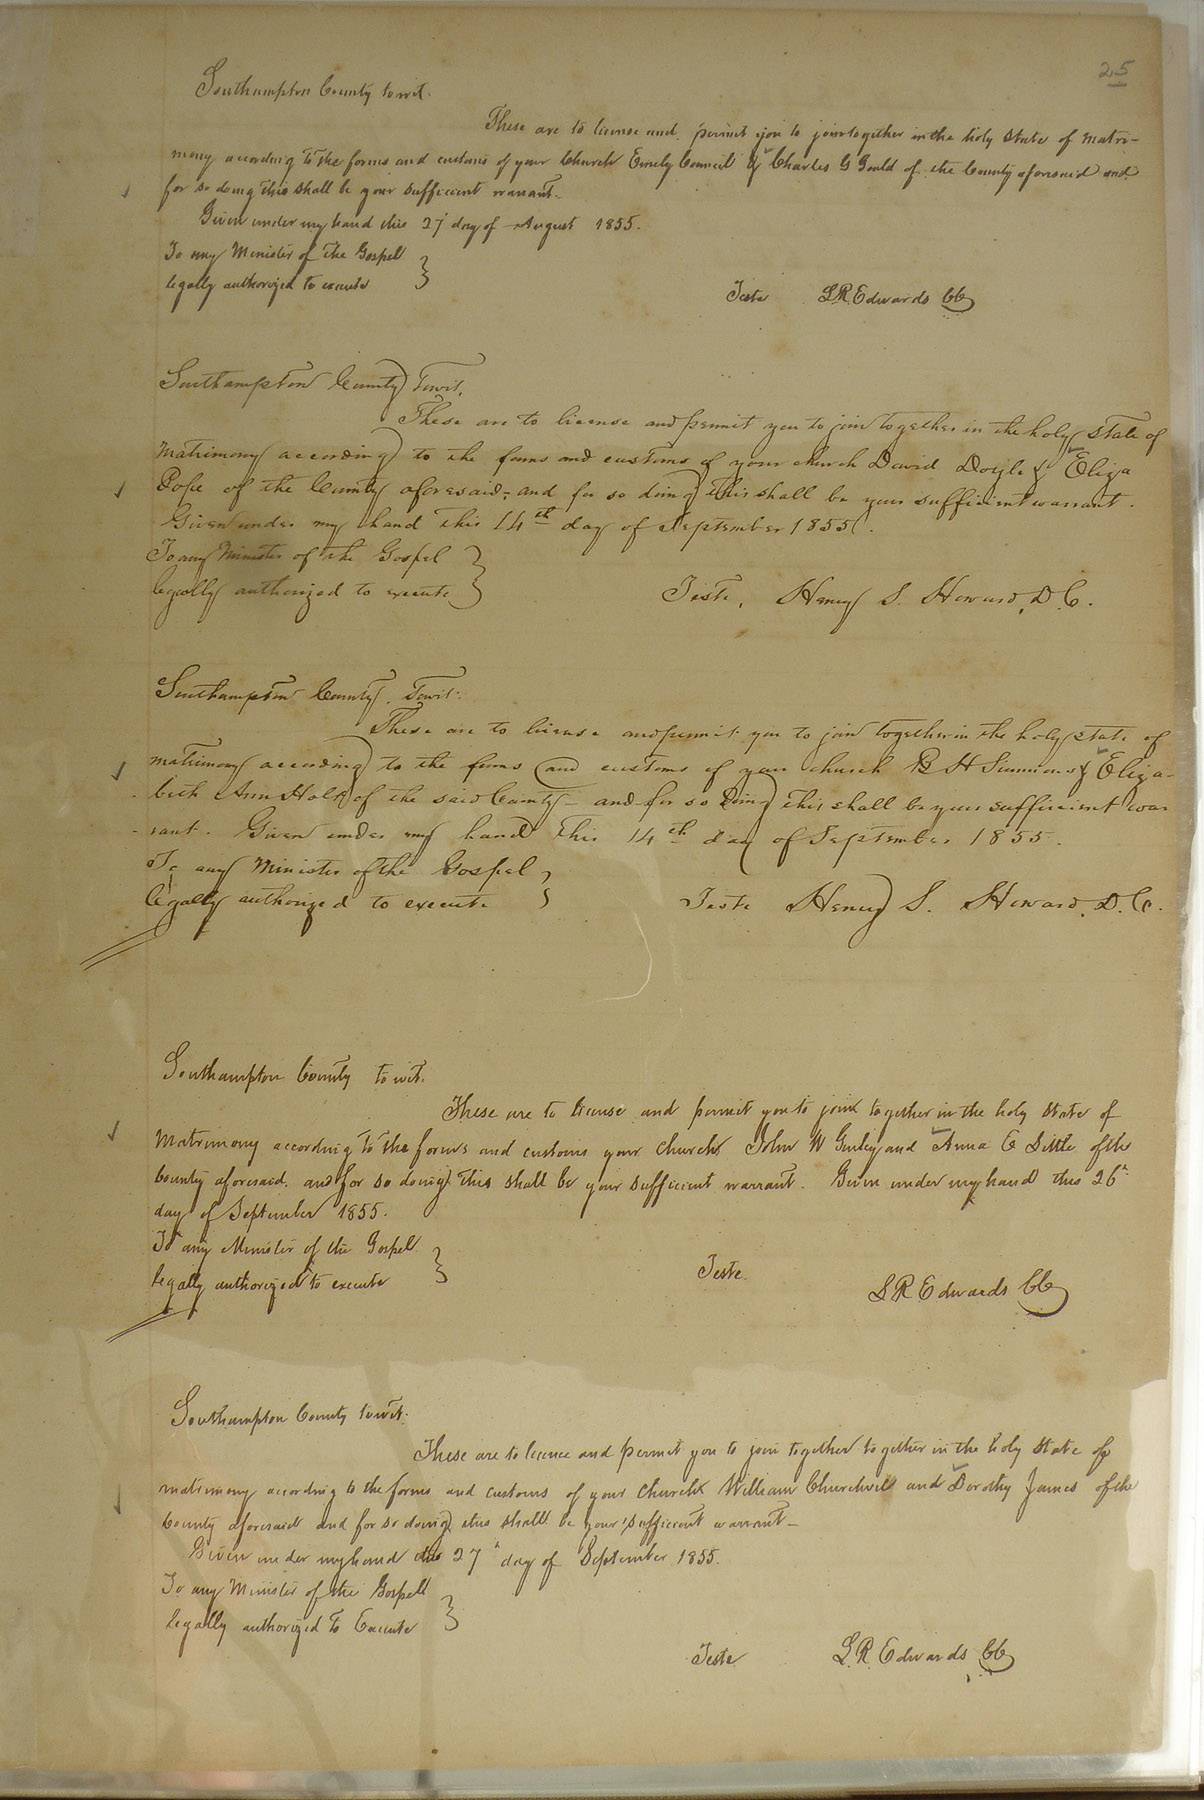 25
Southampton County towit.
These are to licence and permit you to join together in the holy state of matri-
mony according to the forms and customs of your Church Emely Council & Charles G Gould of the County aforesaid and
for so doing this shall be your sufficient warrant.
Given under my hand this 27 day of August 1855.
To any Minister of the Gospel
legally authorized to execute
Teste L R Edwards CC
Southampton County Towit,
These are to license and permit you to join together in the holy state of
matrimony according to the forms and customs of your church David Doyle & Eliza
Pope of the County aforesaid, and for so doing this shall be your sufficient warrant.
Given under my hand this 14th day of September 1855.
To any Minister of the Gospel
legally authorized to execute
Teste, Henry S. Howard, D.C.
Southampton County, Towit:
These are to license and permit you to join together in the holy state of
matrimony according to the forms and customs of your church B H Simmons & Eliza-
beth Ann Holt of the said County - and for so doing this shall be your sufficient war
rant. Given under my hand this 14th day of September 1855.
To any Minister of the Gospel
legally authorized to execute
Teste Henry S. Howard, D.C.
Southampton County to wit.
These are to license and permit you to join together in the holy state of
Matrimony according to the forms and customs your church John W and Anna C Little of the
County aforesaid. and for so doing this shall be your sufficient warrant. Given under my hand this 26th
day of September 1855.
To any Minister of the Gospel
legally authorized to execute
Teste.
L R Edwards CC
Southampton County towit.
These are to licence and permit you to join together together in the holy state of
matrimony according to the forms and customs of your church William Churchwell and Dorothy James of the
County aforesaid and for so doing this shall be your sufficient warrant -
Given under my hand this 27th day of September 1855.
To any Minister of the Gospell
legally authorized to Execute
Teste L. R. Edwards CC